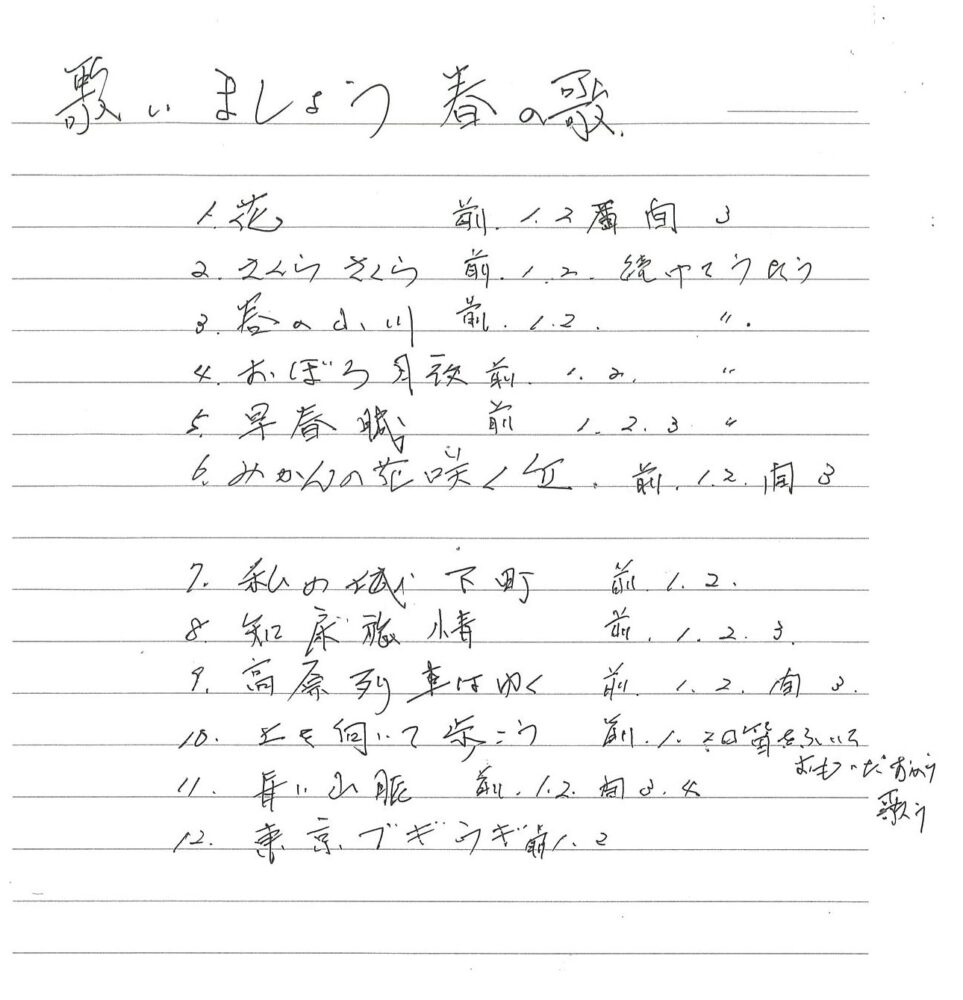 歌いましょう 春の歌.
1. 花 前. 1. 2番 間 3
2. さくら さくら 前. 1. 2. 続けてうたう
3. 春の小川 前. 1. 2. 〃.
4. おぼろ月夜 前. 1. 2. 〃
5. 早春賦 前 1. 2. 3 〃
6. みかんの花咲く丘. 前. 1. 2. 間 3
7. 私の城下町 前. 1. 2.
8 知床旅情 前. 1. 2. 3.
9. 高原列車はゆく 前. 1. 2. 間 3.
10. 上を向いて歩こう 前. 1. 2 口笛をふいて
歌う
11. 青い山脈 前. 1. 2. 間 3. 4
12. 東京ブギウギ 前 1. 2